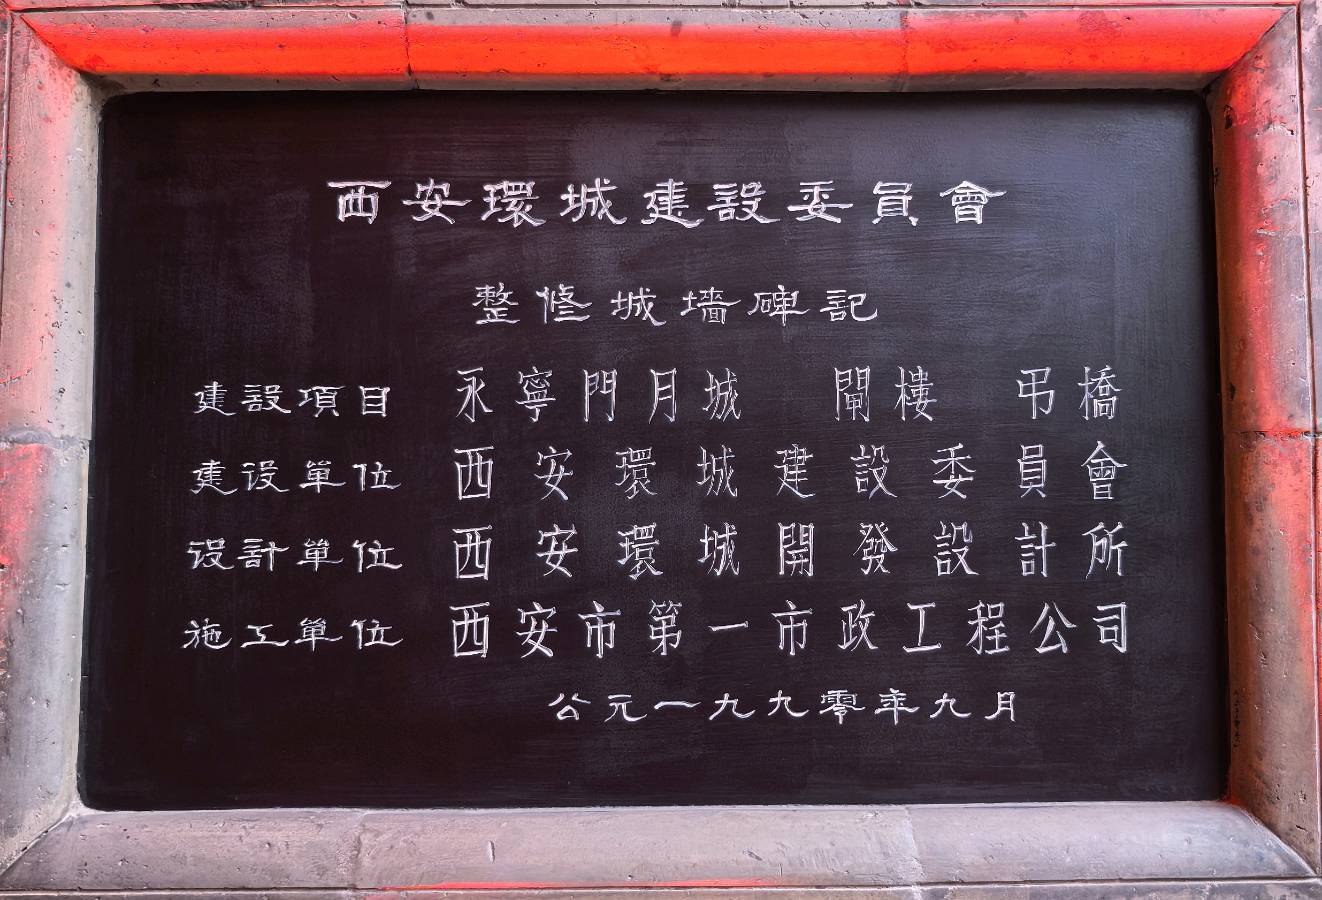 西安環城建設委員會
整修城墻碑記
建設項目 永寧門月城 閘樓 吊橋
建设單位 西安環城建設委員會
设計單位 西安環城開發設計所
施工單位 西安市第一市政工程公司
公元一九九零年九月